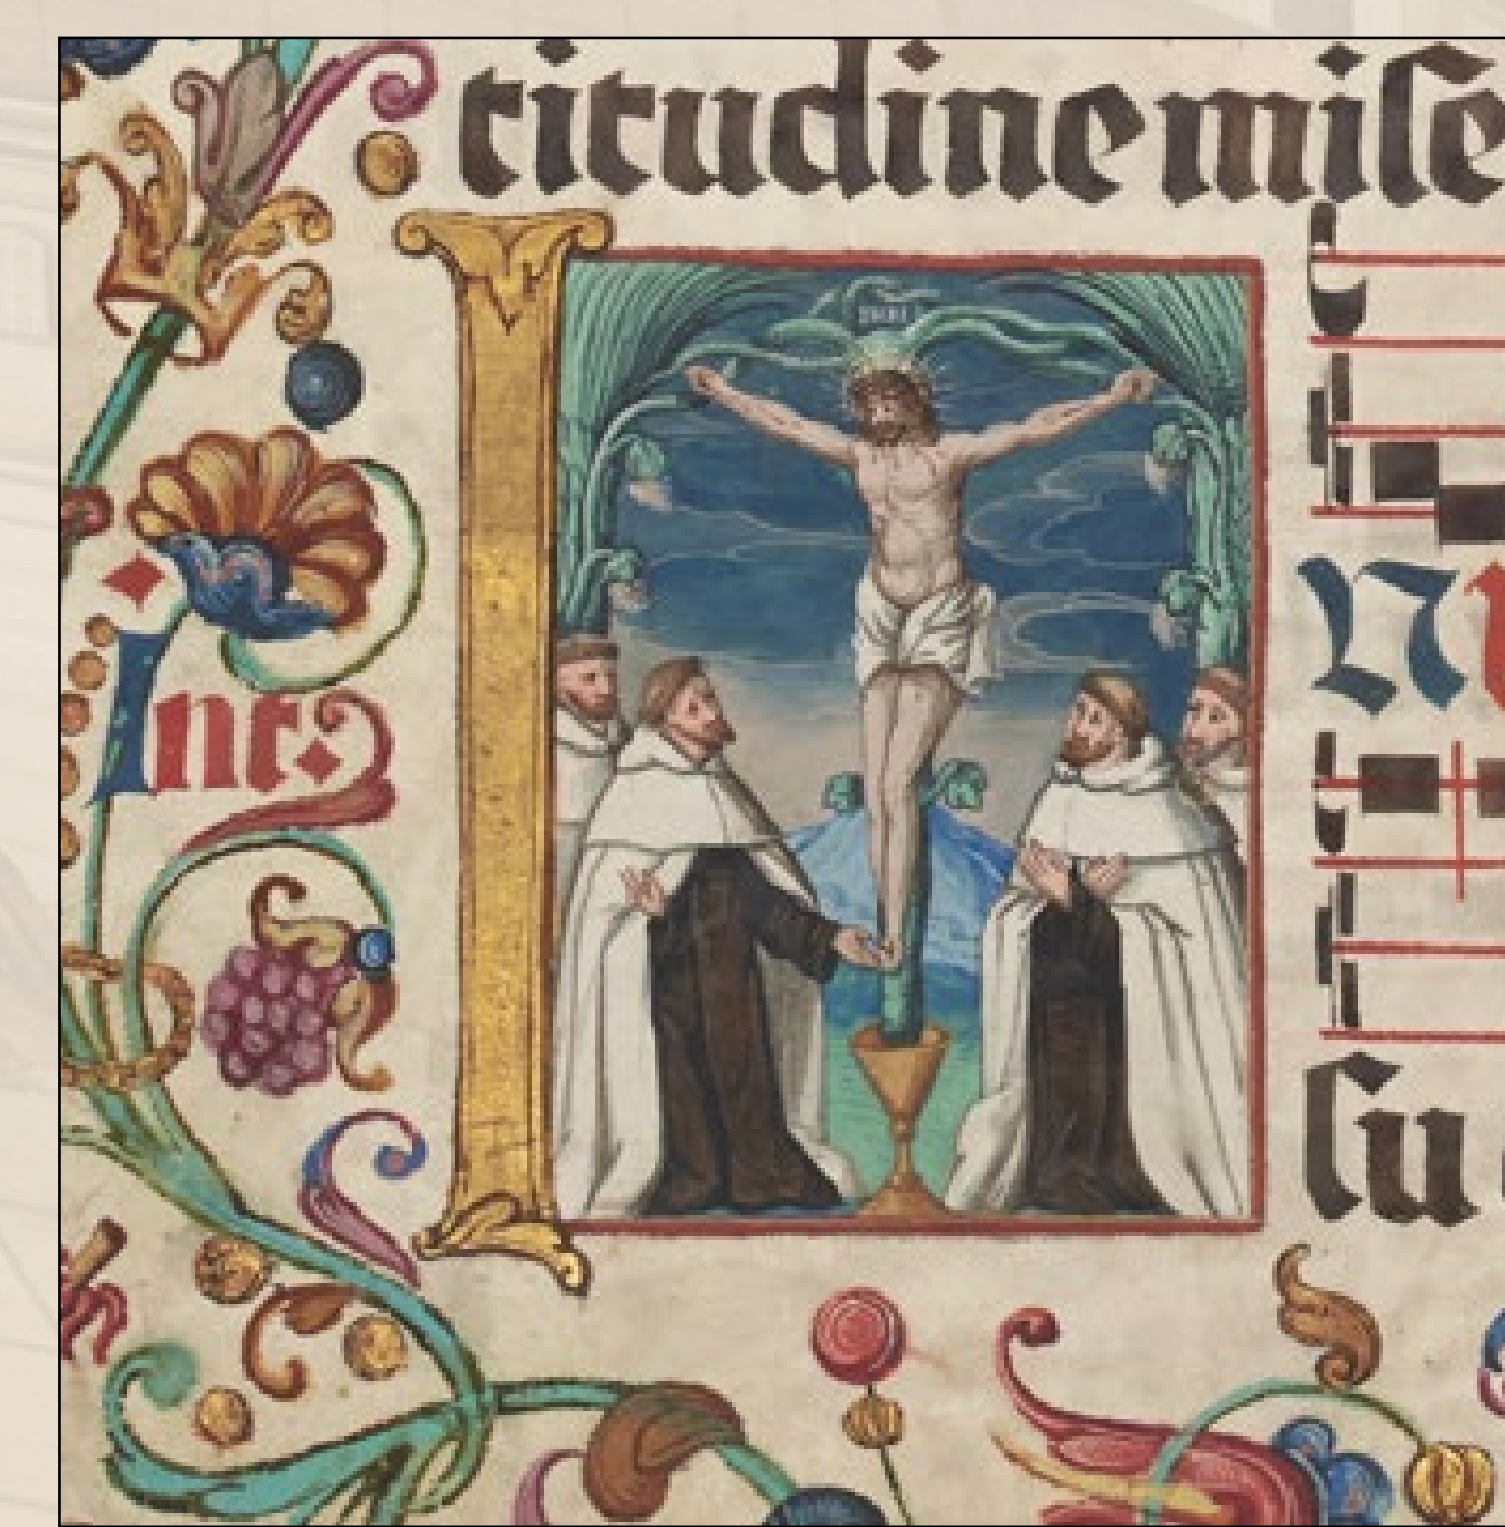 titudine miſe
INRI
Int
Nu
ſu